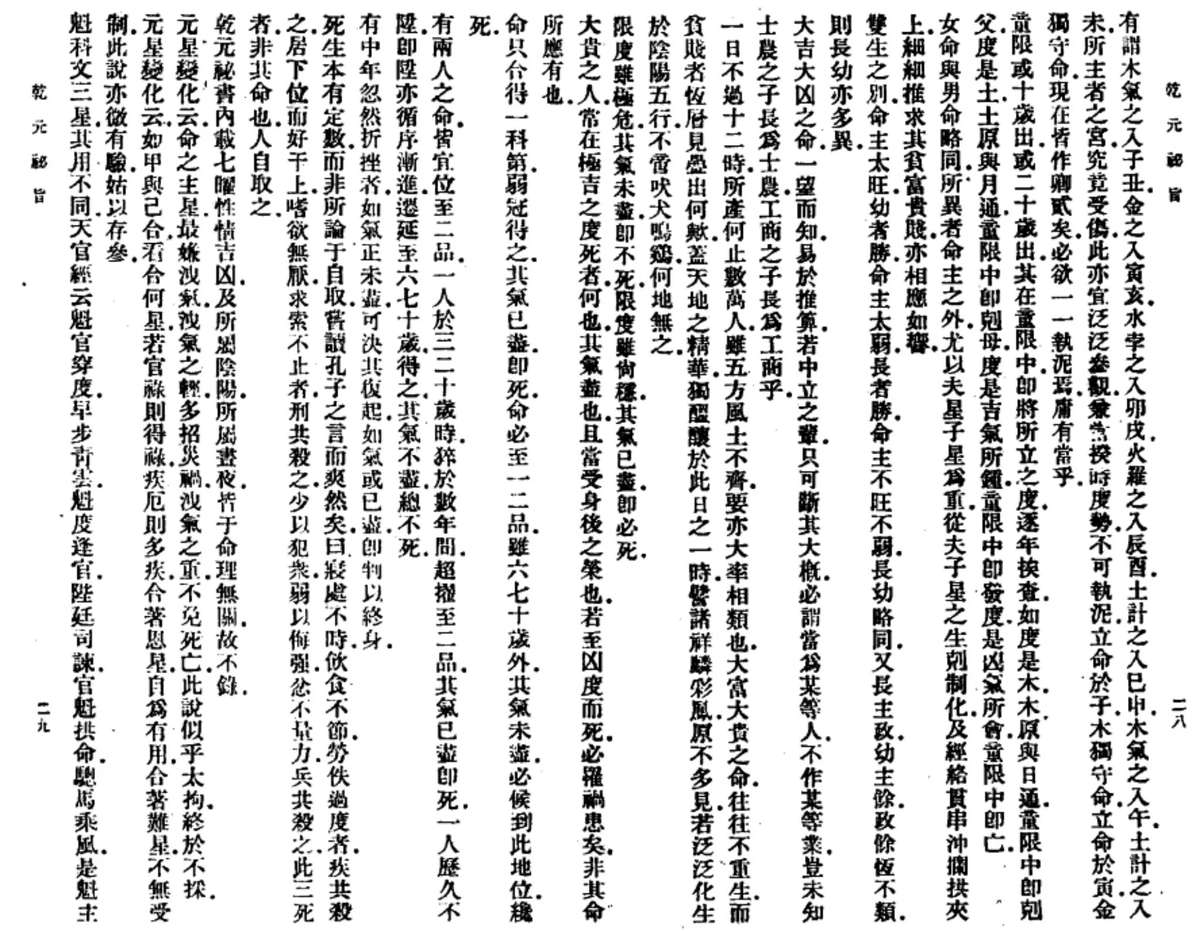 乾元祕旨
二八
有謂木氣之入子丑金之入寅亥水孛之入卯戌火羅之入辰酉土計之入巳申木氣之入午土計之入
未所主者之宮究竟受傷此亦宜泛泛參觀兼當揆時度勢不可執泥立命於子木獨守命立命於寅金
獨守命現在皆作卿貳矣必欲一一執泥焉庸有當乎
童限或十歲出或二十歲出其在童限中卽將所立之度逐年挨查如度是木木原與日通童限中卽剋
父度是土土原與月通童限中卽剋母度是吉氣所鍾童限中卽發度是凶氣所會童限中卽亡
女命與男命略同所異者命主之外尤以夫星子星爲重從夫子星之生剋制化及經絡貫串沖擱拱夾
上細細推求其貧富貴賤亦相應如響
雙生之別命主太旺幼者勝命主太弱長者勝命主不旺不弱長幼略同又長主政幼主餘政餘恆不類
則長幼亦多異
大吉大凶之命一望而知易於推算若中立之輩只可斷其大槪必謂當爲某等人不作某等業豈未知
士農之子長爲士農工商之子長爲工商乎
一日不過十二時所產何止數萬人雖五方風土不齊要亦大率相類也大富大貴之命往往不重生而
貧賤者恆層見疊出何歟蓋天地之精華獨醞釀於此日之一時譬諸祥麟彩鳳原不多見若泛泛化生
於陰陽五行不啻吠犬鳴鷄何地無之
限度雖極危其氣未盡卽不死限度雖尙穩其氣已盡卽必死
大貴之人常在極吉之度死者何也其氣盡也且當受身後之榮也若至凶度而死必罹禍患矣非其命
所應有也
命只合得一科第弱冠得之其氣已盡卽死命必至一二品雖六七十歲外其氣未盡必候到此地位纔
死
有兩人之命皆宜位至二品一人於三二十歲時猝於數年間超擢至二品其氣已盡卽死一人歷久不
陞卽陞亦循序漸進遷延至六七十歲得之其氣不盡總不死
有中年忽然折挫者如氣正未盡可決其復起如氣或已盡卽判以終身
死生本有定數而非所論于自取嘗讀孔子之言而爽然矣曰寢處不時飮食不節勞佚過度者疾共殺
之居下位而好干上嗜欲無厭求索不止者刑共殺之少以犯衆弱以侮强忿不量力兵共殺之此三死
者非其命也人自取之
乾元祕書內載七曜性情吉凶及所屬陰陽所屬晝夜皆于命理無關故不錄
元星變化云命之主星最嫌洩氣洩氣之輕多招災禍洩氣之重不免死亡此說似乎太拘終於不採
元星變化云如甲與己合看合何星若官祿則得祿疾厄則多疾合著恩星自爲有用合著難星不無受
制此說亦微有驗姑以存參
魁科文三星其用不同天官經云魁官穿度早步靑雲魁度逢官陞廷司諫官魁拱命驄馬乘風是魁主
乾元祕旨
二九